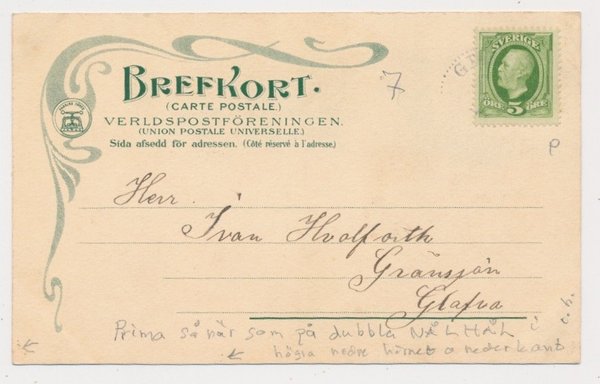 BREFKORT.
(CARTE POSTALE.)
VERLDSPOSTFÖRENINGEN.
(UNION POSTALE UNIVERSELLE.)
Sida afsedd för adressen. (Côté réservé à l'adresse.)
7
SVERIGE
ÖRE 5 ÖRE
P
Herr
Ivan Hvalforth
Gränsjön
Glafva
Prima så när som på dubbla NÅLHÅL i
högra nedre hörnet o nederkant
ö. h.